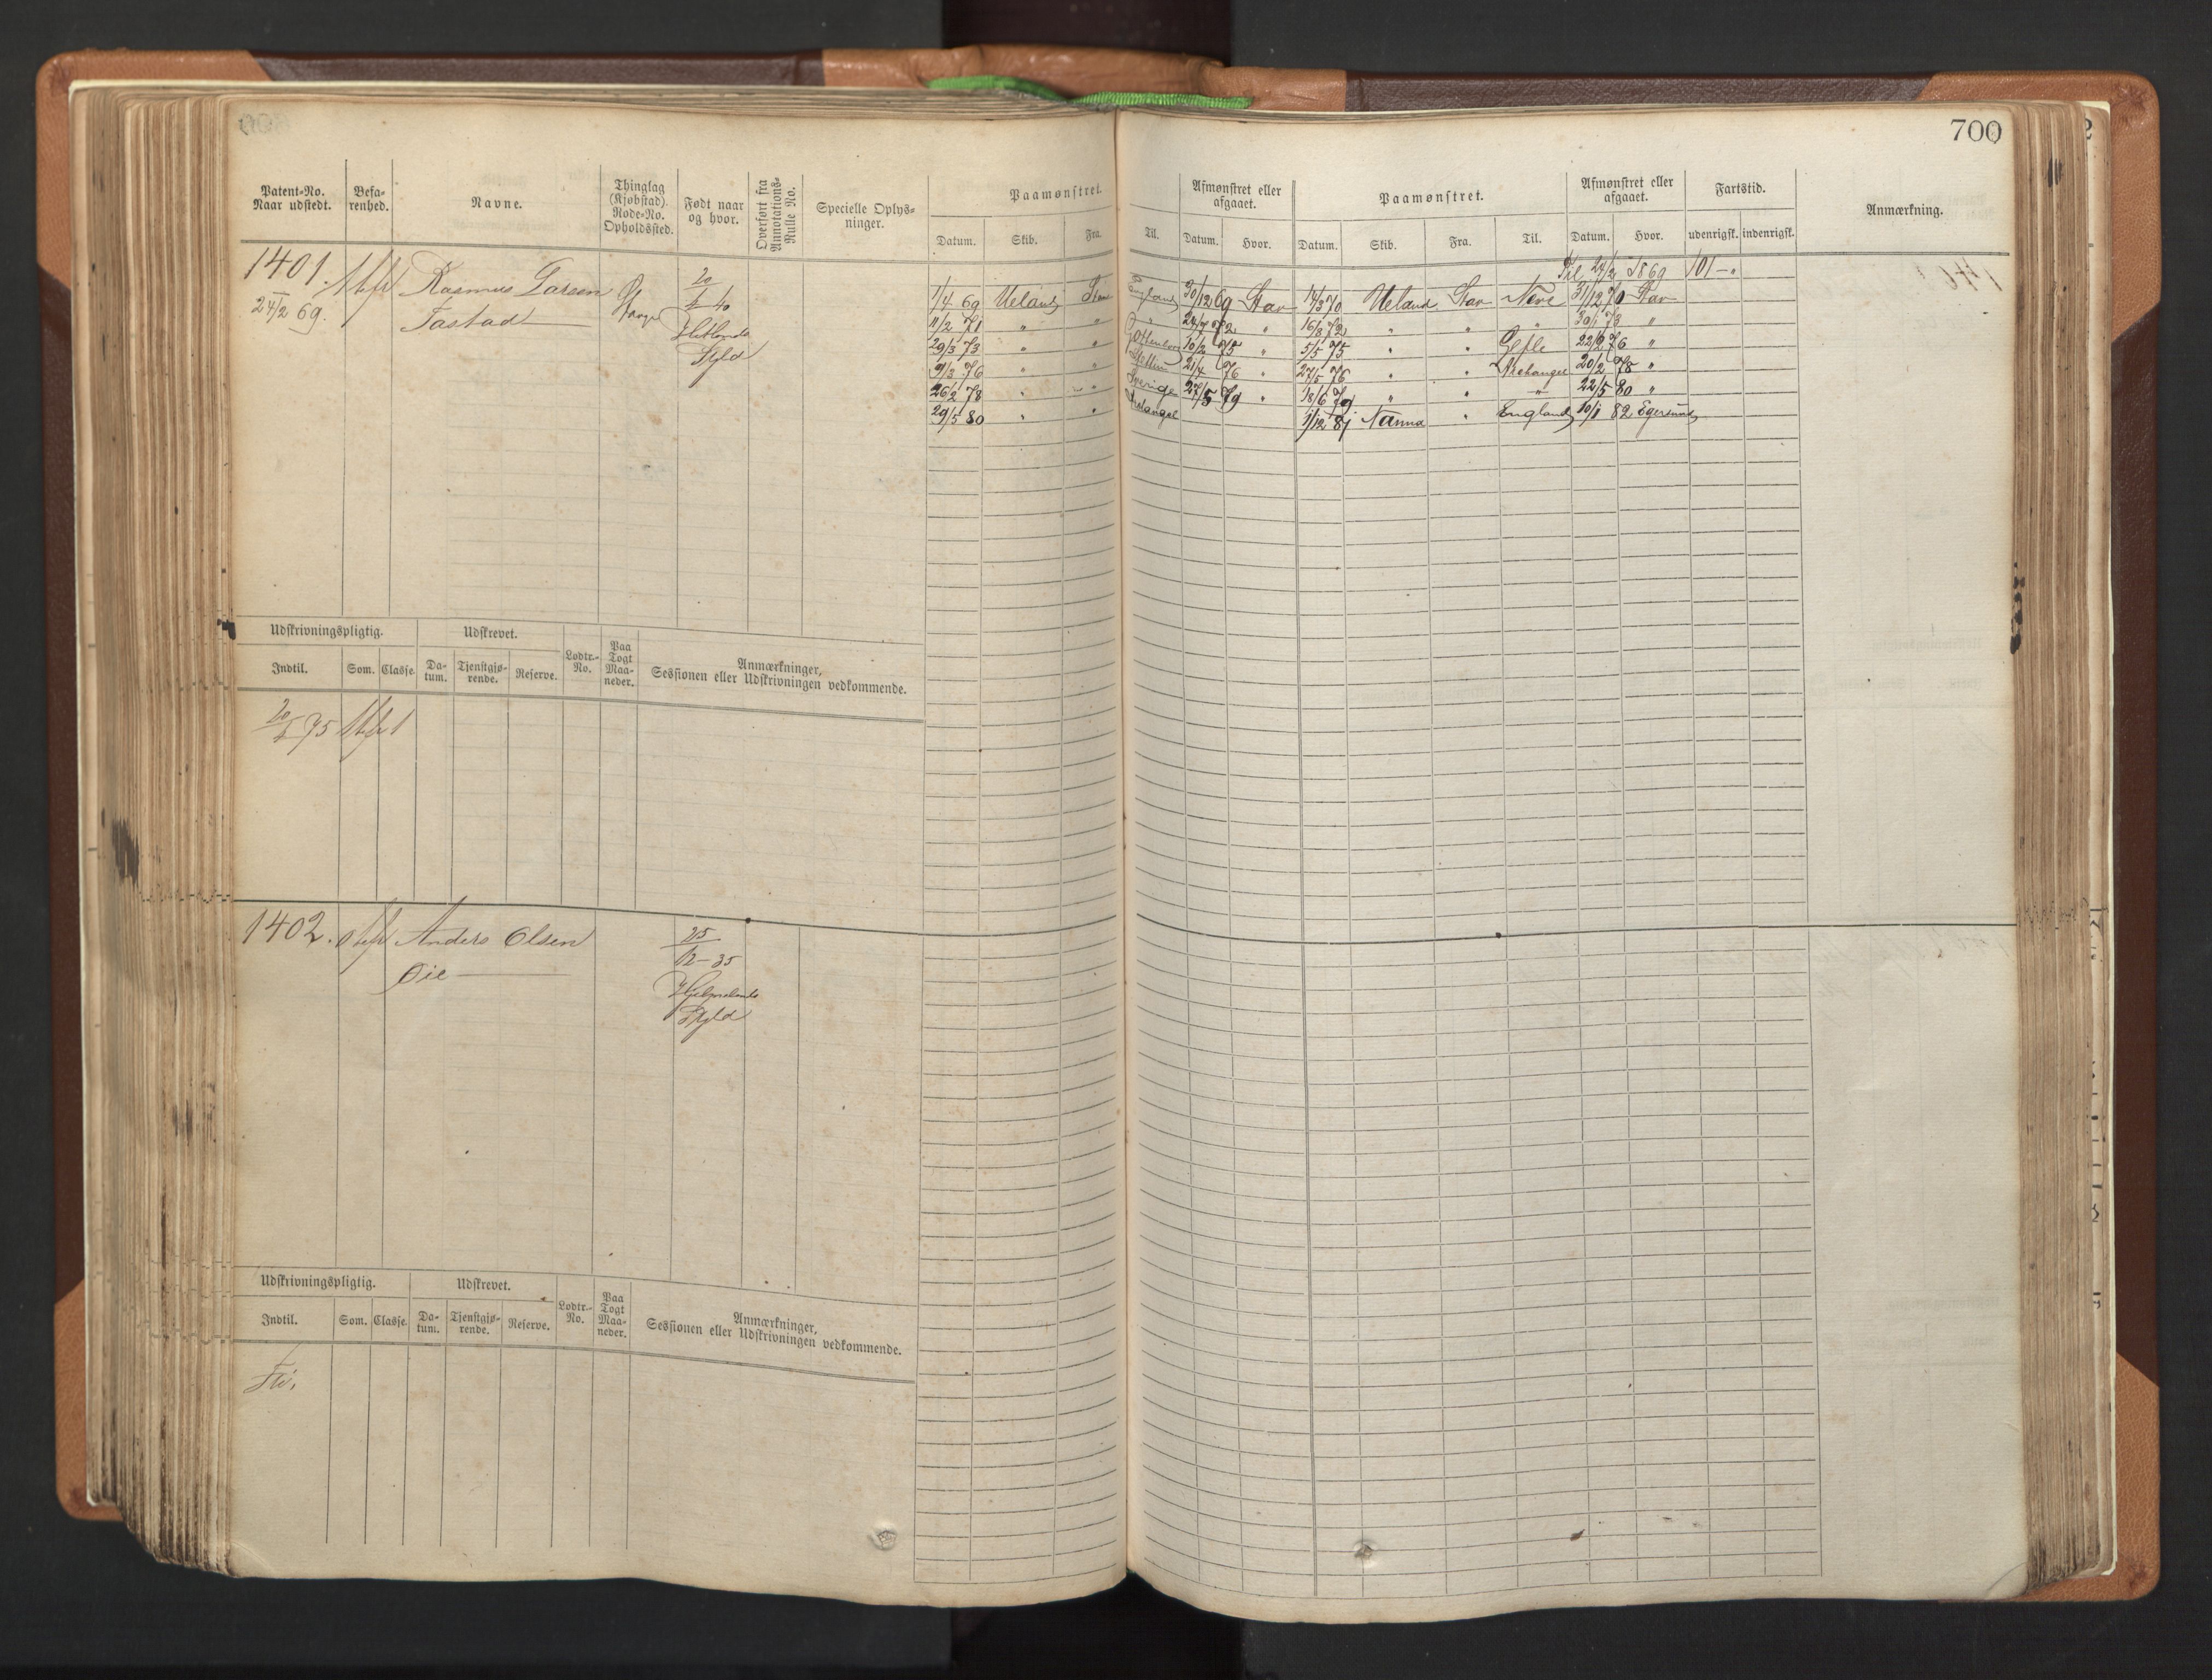 700
Patent-No. Naar udstedt.
Befarenhed.
Navne.
Thinglag (Kjøbstad). Rode-No. Opholdssted.
Født naar og hvor.
Overført fra Annotations-Rulle No.
Specielle Oplysninger.
Paamønstret.
Datum. Skib. Fra. Til.
Afmønstret eller afgaaet.
Datum. Hvor.
Paamønstret.
Datum. Skib. Fra. Til.
Afmønstret eller afgaaet.
Datum. Hvor.
Fartstid.
udenrigsk. indenrigsk.
Anmærkning.
1401.
24/2 69.
Rasmus Larsen
Tastad
20
40
Hetlands
Skjld
Til 24/2 1869 101 - "
1/4 69 Ueland Stav England 30/12 69 Stav 14/3 70 Ueland Stav Neve 31/12 70 Stav
11/2 71 " " " 24/7 72 " 16/8 72 " " " 30/1 73 "
29/3 73 " " Gottenborg 10/2 75 " 5/5 75 " " Gefle 22/2 76 "
9/3 76 " " Stettin 21/4 76 " 27/5 76 " " Archangel 20/2 78 "
26/2 78 " " Sverige 27/5 79 " 18/6 79 " " " 22/5 80 "
29/5 80 " " Archangel 1/12 81 Nanna " England 10/1 82 Egersund
Udskrivningspligtig. Udskrevet. Lodtr.-No. Paa Togt Maaneder. Anmærkninger, Sessionen eller Udskrivningen vedkommende.
Indtil. Som. Classe. Datum. Tjenstgjørende. Reserve.
75 1
1402.
Anders Olsen
Øie
25
12-35
Hjelmelands
Skjld
Udskrivningspligtig. Udskrevet. Lodtr.-No. Paa Togt Maaneder. Anmærkninger, Sessionen eller Udskrivningen vedkommende.
Indtil. Som. Classe. Datum. Tjenstgjørende. Reserve.
Fri.